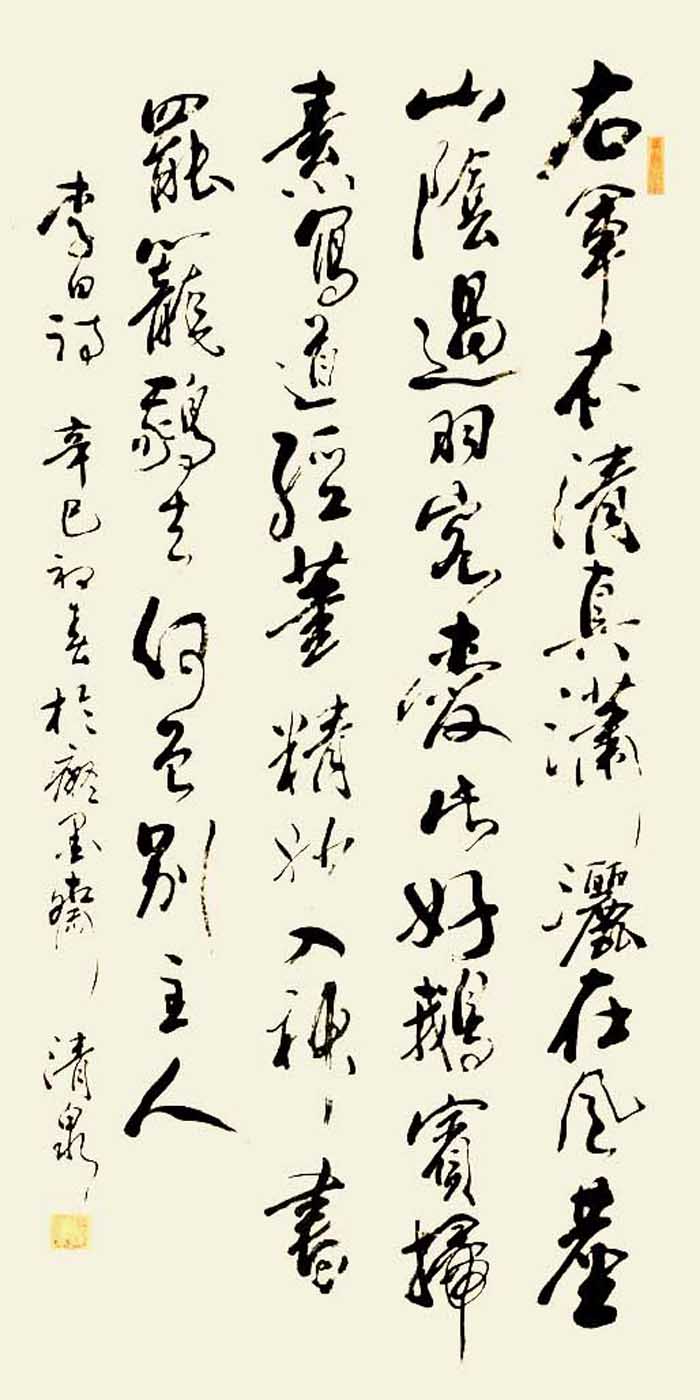 右軍本清真瀟灑在風塵
山陰遇羽客愛此好鵝賓掃
素寫道經筆精妙入神書
罷籠鵝去何曾別主人
李白詩 辛巳初春於癡墨齋 清泉